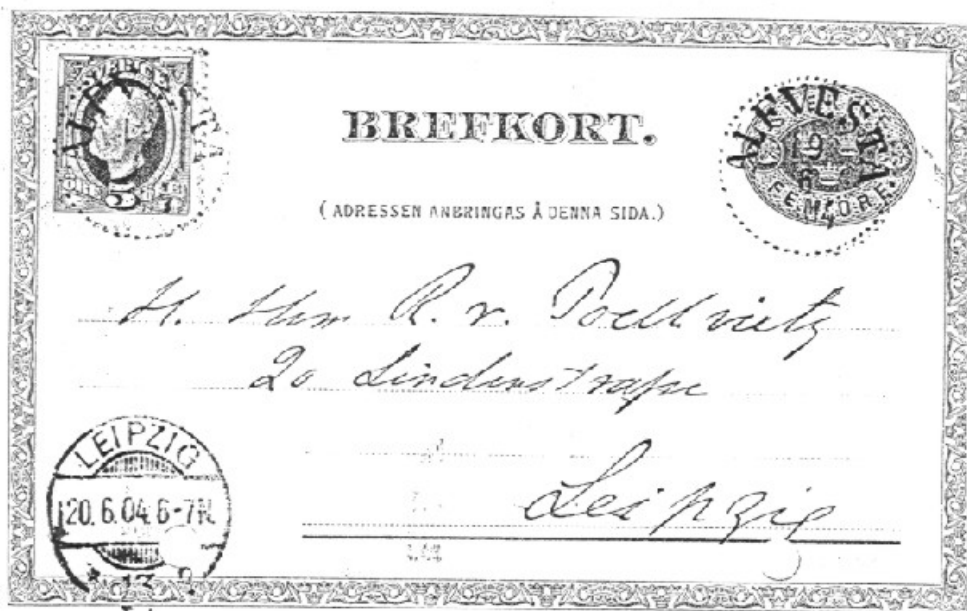 SVERIGE
ALFVESTA
BREFKORT.
ALFVESTA
19
6
4
FEM ÖRE.
(ADRESSEN ANBRINGAS Å DENNA SIDA.)
H. Herrn R. v.
20 Lindenstraße
Leipzig
LEIPZIG
20.6.04.6-7N.
13